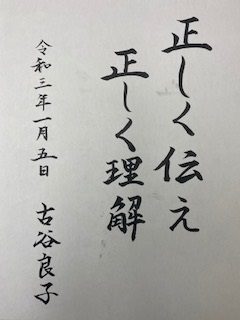 正しく伝え
正しく理解
令和三年一月五日
古谷良子